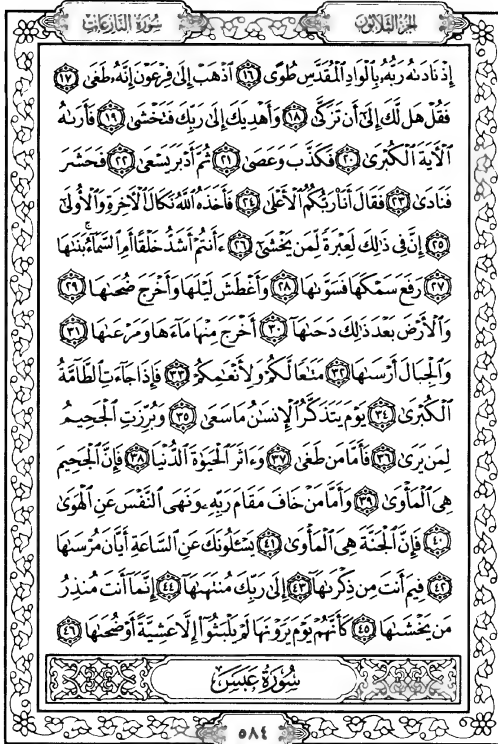 سُورَةُ النَّازِعَاتِ
الجُزْءُ الثَّلَاثُونَ
إِذْ نَادَىٰهُ رَبُّهُۥ بِٱلْوَادِ ٱلْمُقَدَّسِ طُوًى ١٦ ٱذْهَبْ إِلَىٰ فِرْعَوْنَ إِنَّهُۥ طَغَىٰ ١٧
فَقُلْ هَل لَّكَ إِلَىٰٓ أَن تَزَكَّىٰ ١٨ وَأَهْدِيَكَ إِلَىٰ رَبِّكَ فَتَخْشَىٰ ١٩ فَأَرَىٰهُ
ٱلْـَٔايَةَ ٱلْكُبْرَىٰ ٢٠ فَكَذَّبَ وَعَصَىٰ ٢١ ثُمَّ أَدْبَرَ يَسْعَىٰ ٢٢ فَحَشَرَ
فَنَادَىٰ ٢٣ فَقَالَ أَنَا۠ رَبُّكُمُ ٱلْأَعْلَىٰ ٢٤ فَأَخَذَهُ ٱللَّهُ نَكَالَ ٱلْـَٔاخِرَةِ وَٱلْأُولَىٰٓ
٢٥ إِنَّ فِى ذَٰلِكَ لَعِبْرَةً لِّمَن يَخْشَىٰٓ ٢٦ ءَأَنتُمْ أَشَدُّ خَلْقًا أَمِ ٱلسَّمَآءُ ۚ بَنَىٰهَا
٢٧ رَفَعَ سَمْكَهَا فَسَوَّىٰهَا ٢٨ وَأَغْطَشَ لَيْلَهَا وَأَخْرَجَ ضُحَىٰهَا ٢٩
وَٱلْأَرْضَ بَعْدَ ذَٰلِكَ دَحَىٰهَآ ٣٠ أَخْرَجَ مِنْهَا مَآءَهَا وَمَرْعَىٰهَا ٣١
وَٱلْجِبَالَ أَرْسَىٰهَا ٣٢ مَتَـٰعًا لَّكُمْ وَلِأَنْعَـٰمِكُمْ ٣٣ فَإِذَا جَآءَتِ ٱلطَّآمَّةُ
ٱلْكُبْرَىٰ ٣٤ يَوْمَ يَتَذَكَّرُ ٱلْإِنسَـٰنُ مَا سَعَىٰ ٣٥ وَبُرِّزَتِ ٱلْجَحِيمُ
لِمَن يَرَىٰ ٣٦ فَأَمَّا مَن طَغَىٰ ٣٧ وَءَاثَرَ ٱلْحَيَوٰةَ ٱلدُّنْيَا ٣٨ فَإِنَّ ٱلْجَحِيمَ
هِىَ ٱلْمَأْوَىٰ ٣٩ وَأَمَّا مَنْ خَافَ مَقَامَ رَبِّهِۦ وَنَهَى ٱلنَّفْسَ عَنِ ٱلْهَوَىٰ
٤٠ فَإِنَّ ٱلْجَنَّةَ هِىَ ٱلْمَأْوَىٰ ٤١ يَسْـَٔلُونَكَ عَنِ ٱلسَّاعَةِ أَيَّانَ مُرْسَىٰهَا
٤٢ فِيمَ أَنتَ مِن ذِكْرَىٰهَآ ٤٣ إِلَىٰ رَبِّكَ مُنتَهَىٰهَآ ٤٤ إِنَّمَآ أَنتَ مُنذِرُ
مَن يَخْشَىٰهَا ٤٥ كَأَنَّهُمْ يَوْمَ يَرَوْنَهَا لَمْ يَلْبَثُوٓا۟ إِلَّا عَشِيَّةً أَوْ ضُحَىٰهَا ٤٦
سُورَةُ عَبَسَ
٥٨٤